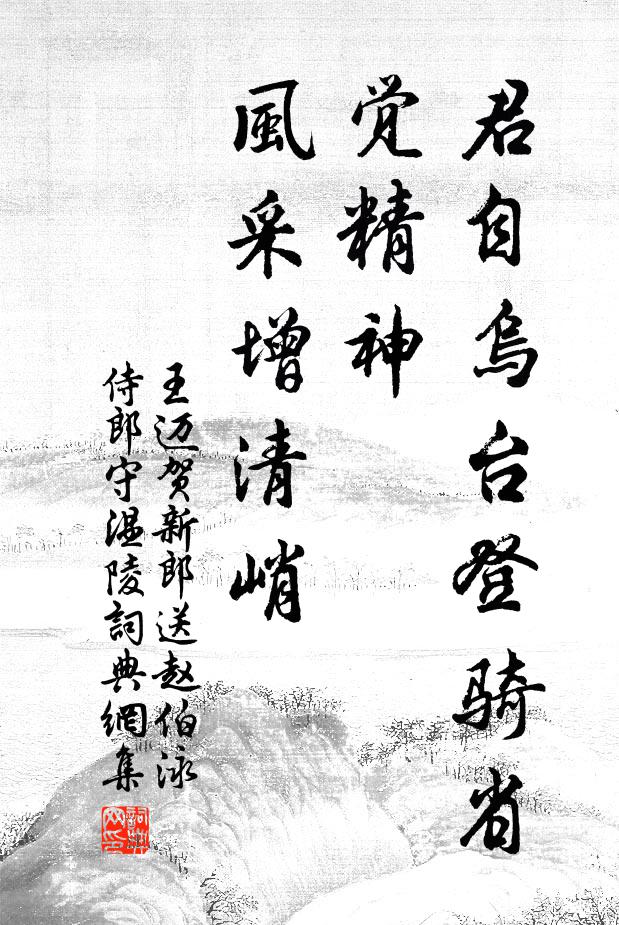 君自乌台登骑省
觉精神
風采增清峭
王迈贺新郎送赵伯泳
侍郎守温陵詞典網集